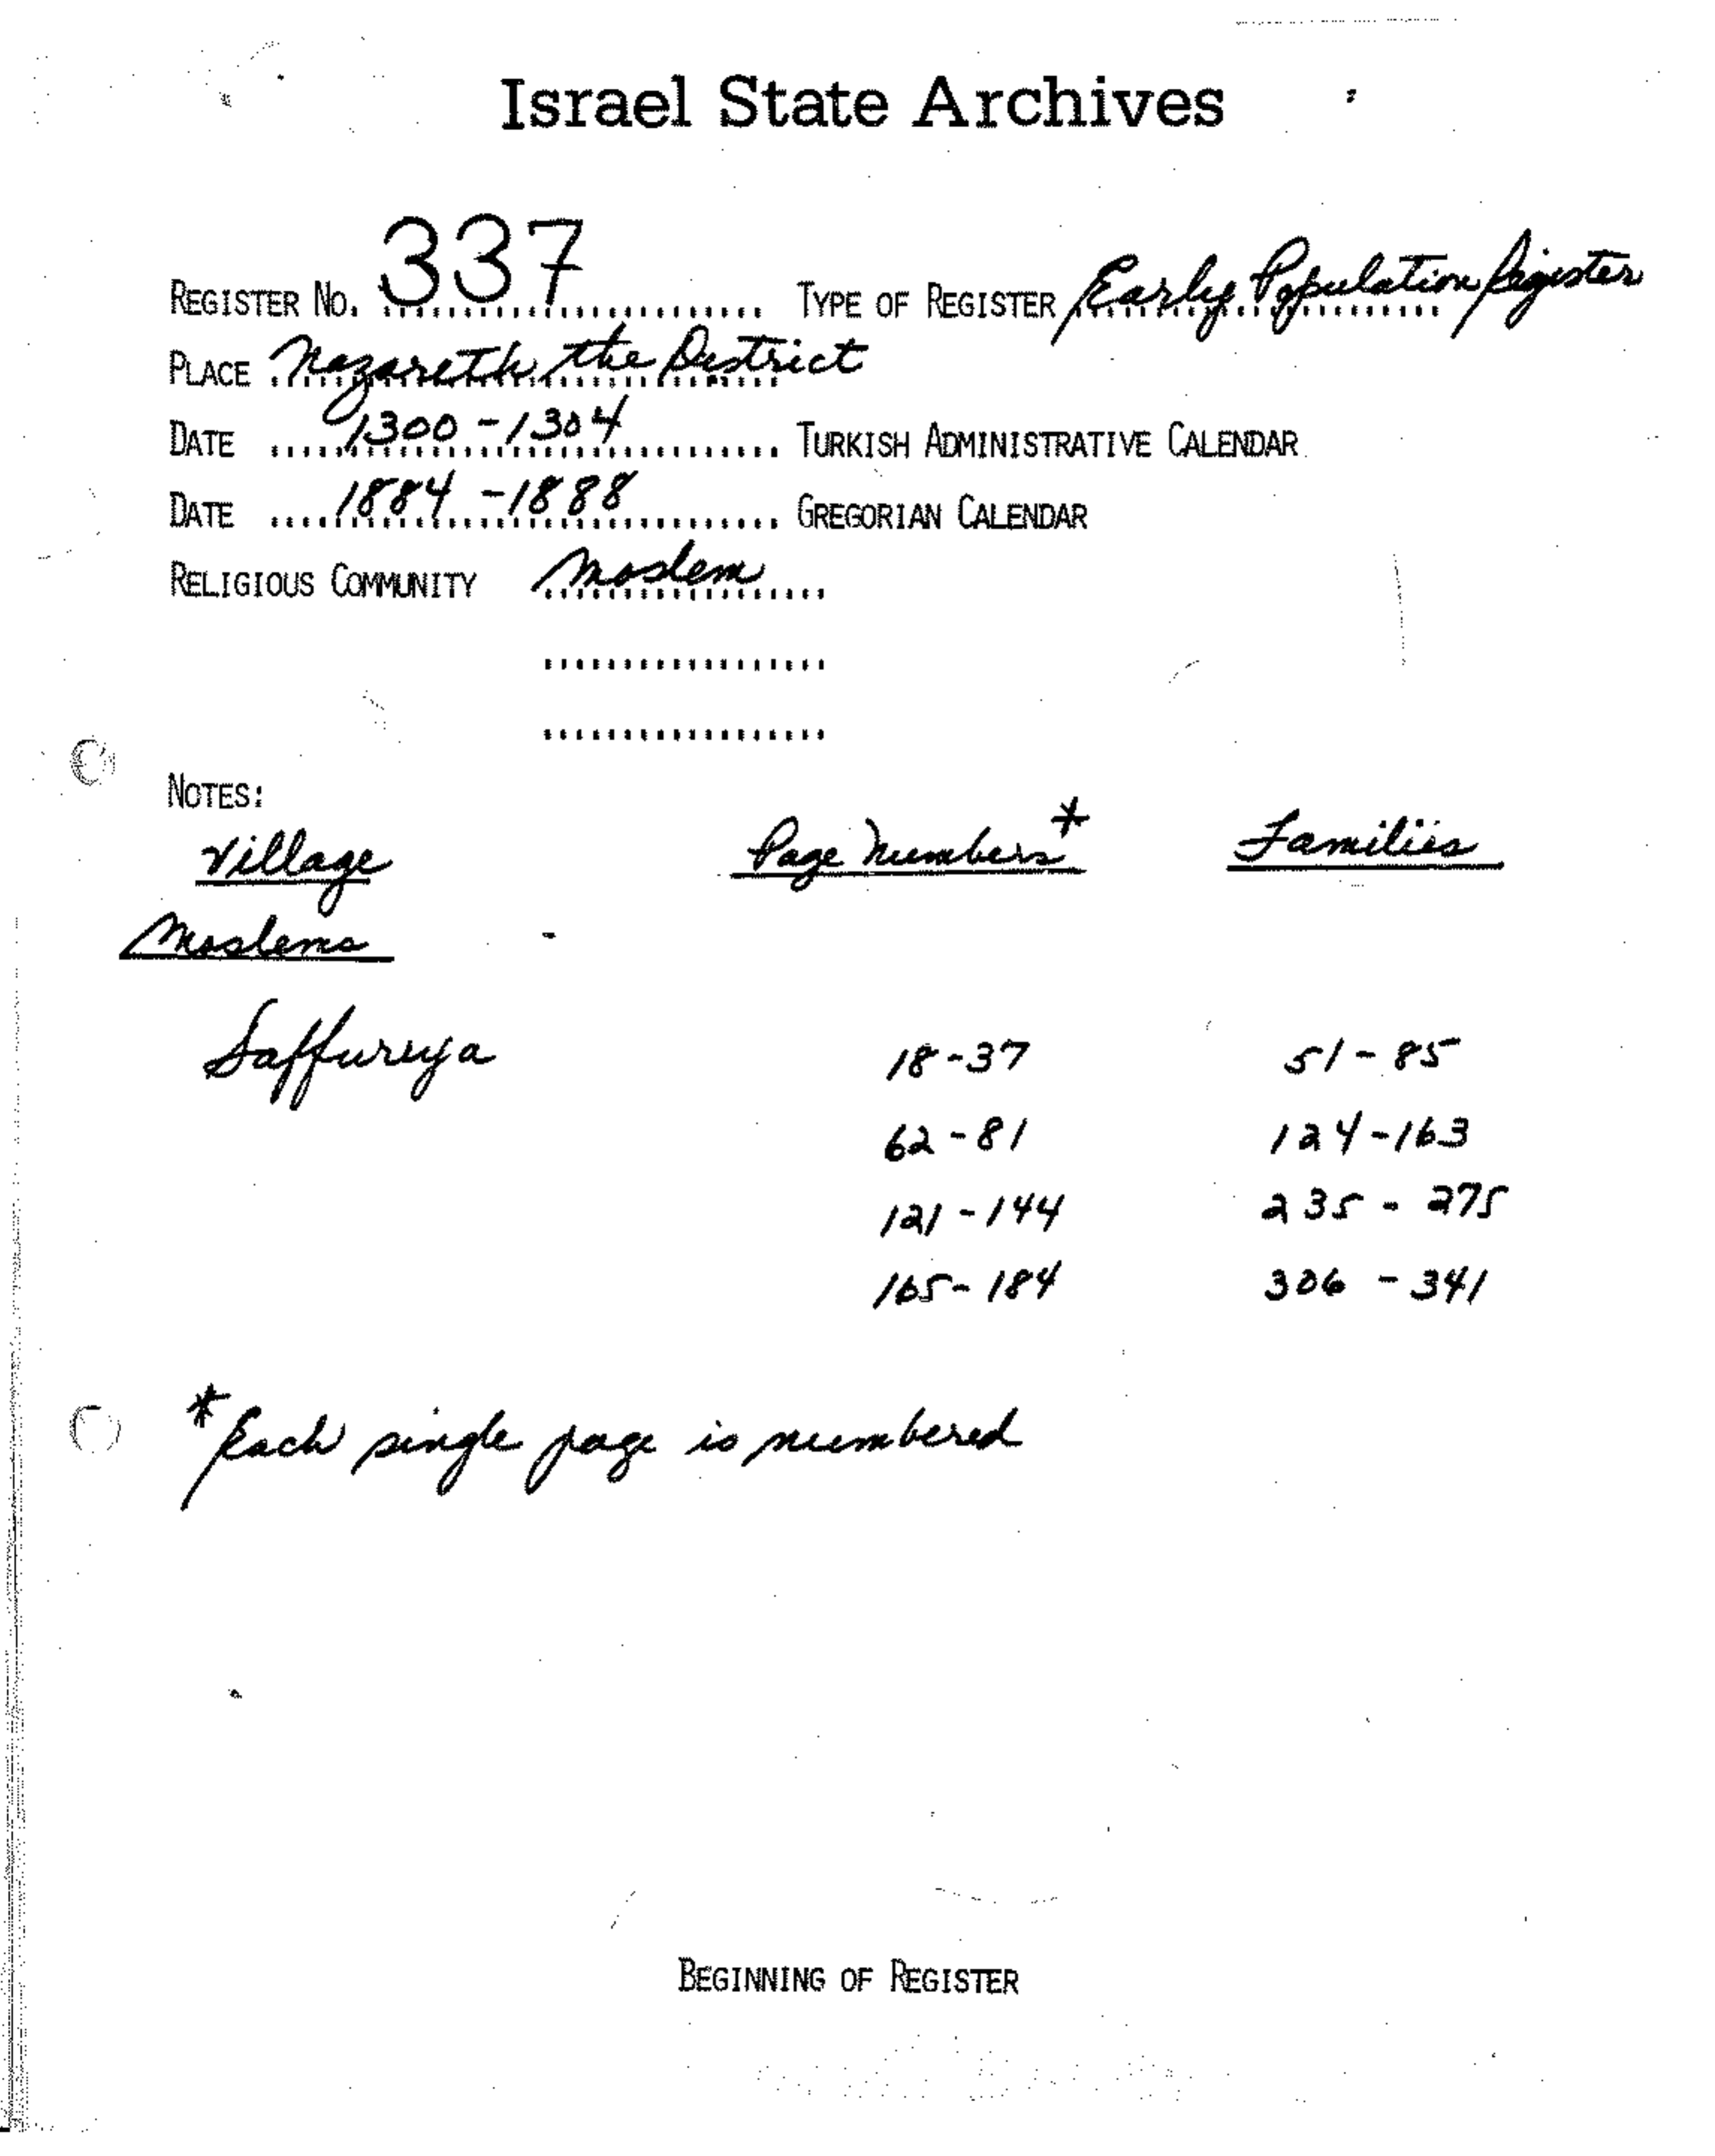 Israel State Archives
REGISTER NO. 337 TYPE OF REGISTER Early Population Register
PLACE Nazareth, the District
DATE 1300-1304 TURKISH ADMINISTRATIVE CALENDAR
DATE 1884-1888 GREGORIAN CALENDAR
RELIGIOUS COMMUNITY Moslem
NOTES:
Village Page Numbers* Families
Moslems
Saffuriya 18-37 51-85
62-81 124-163
121-144 235-275
165-184 306-341
*Each single page is numbered
BEGINNING OF REGISTER